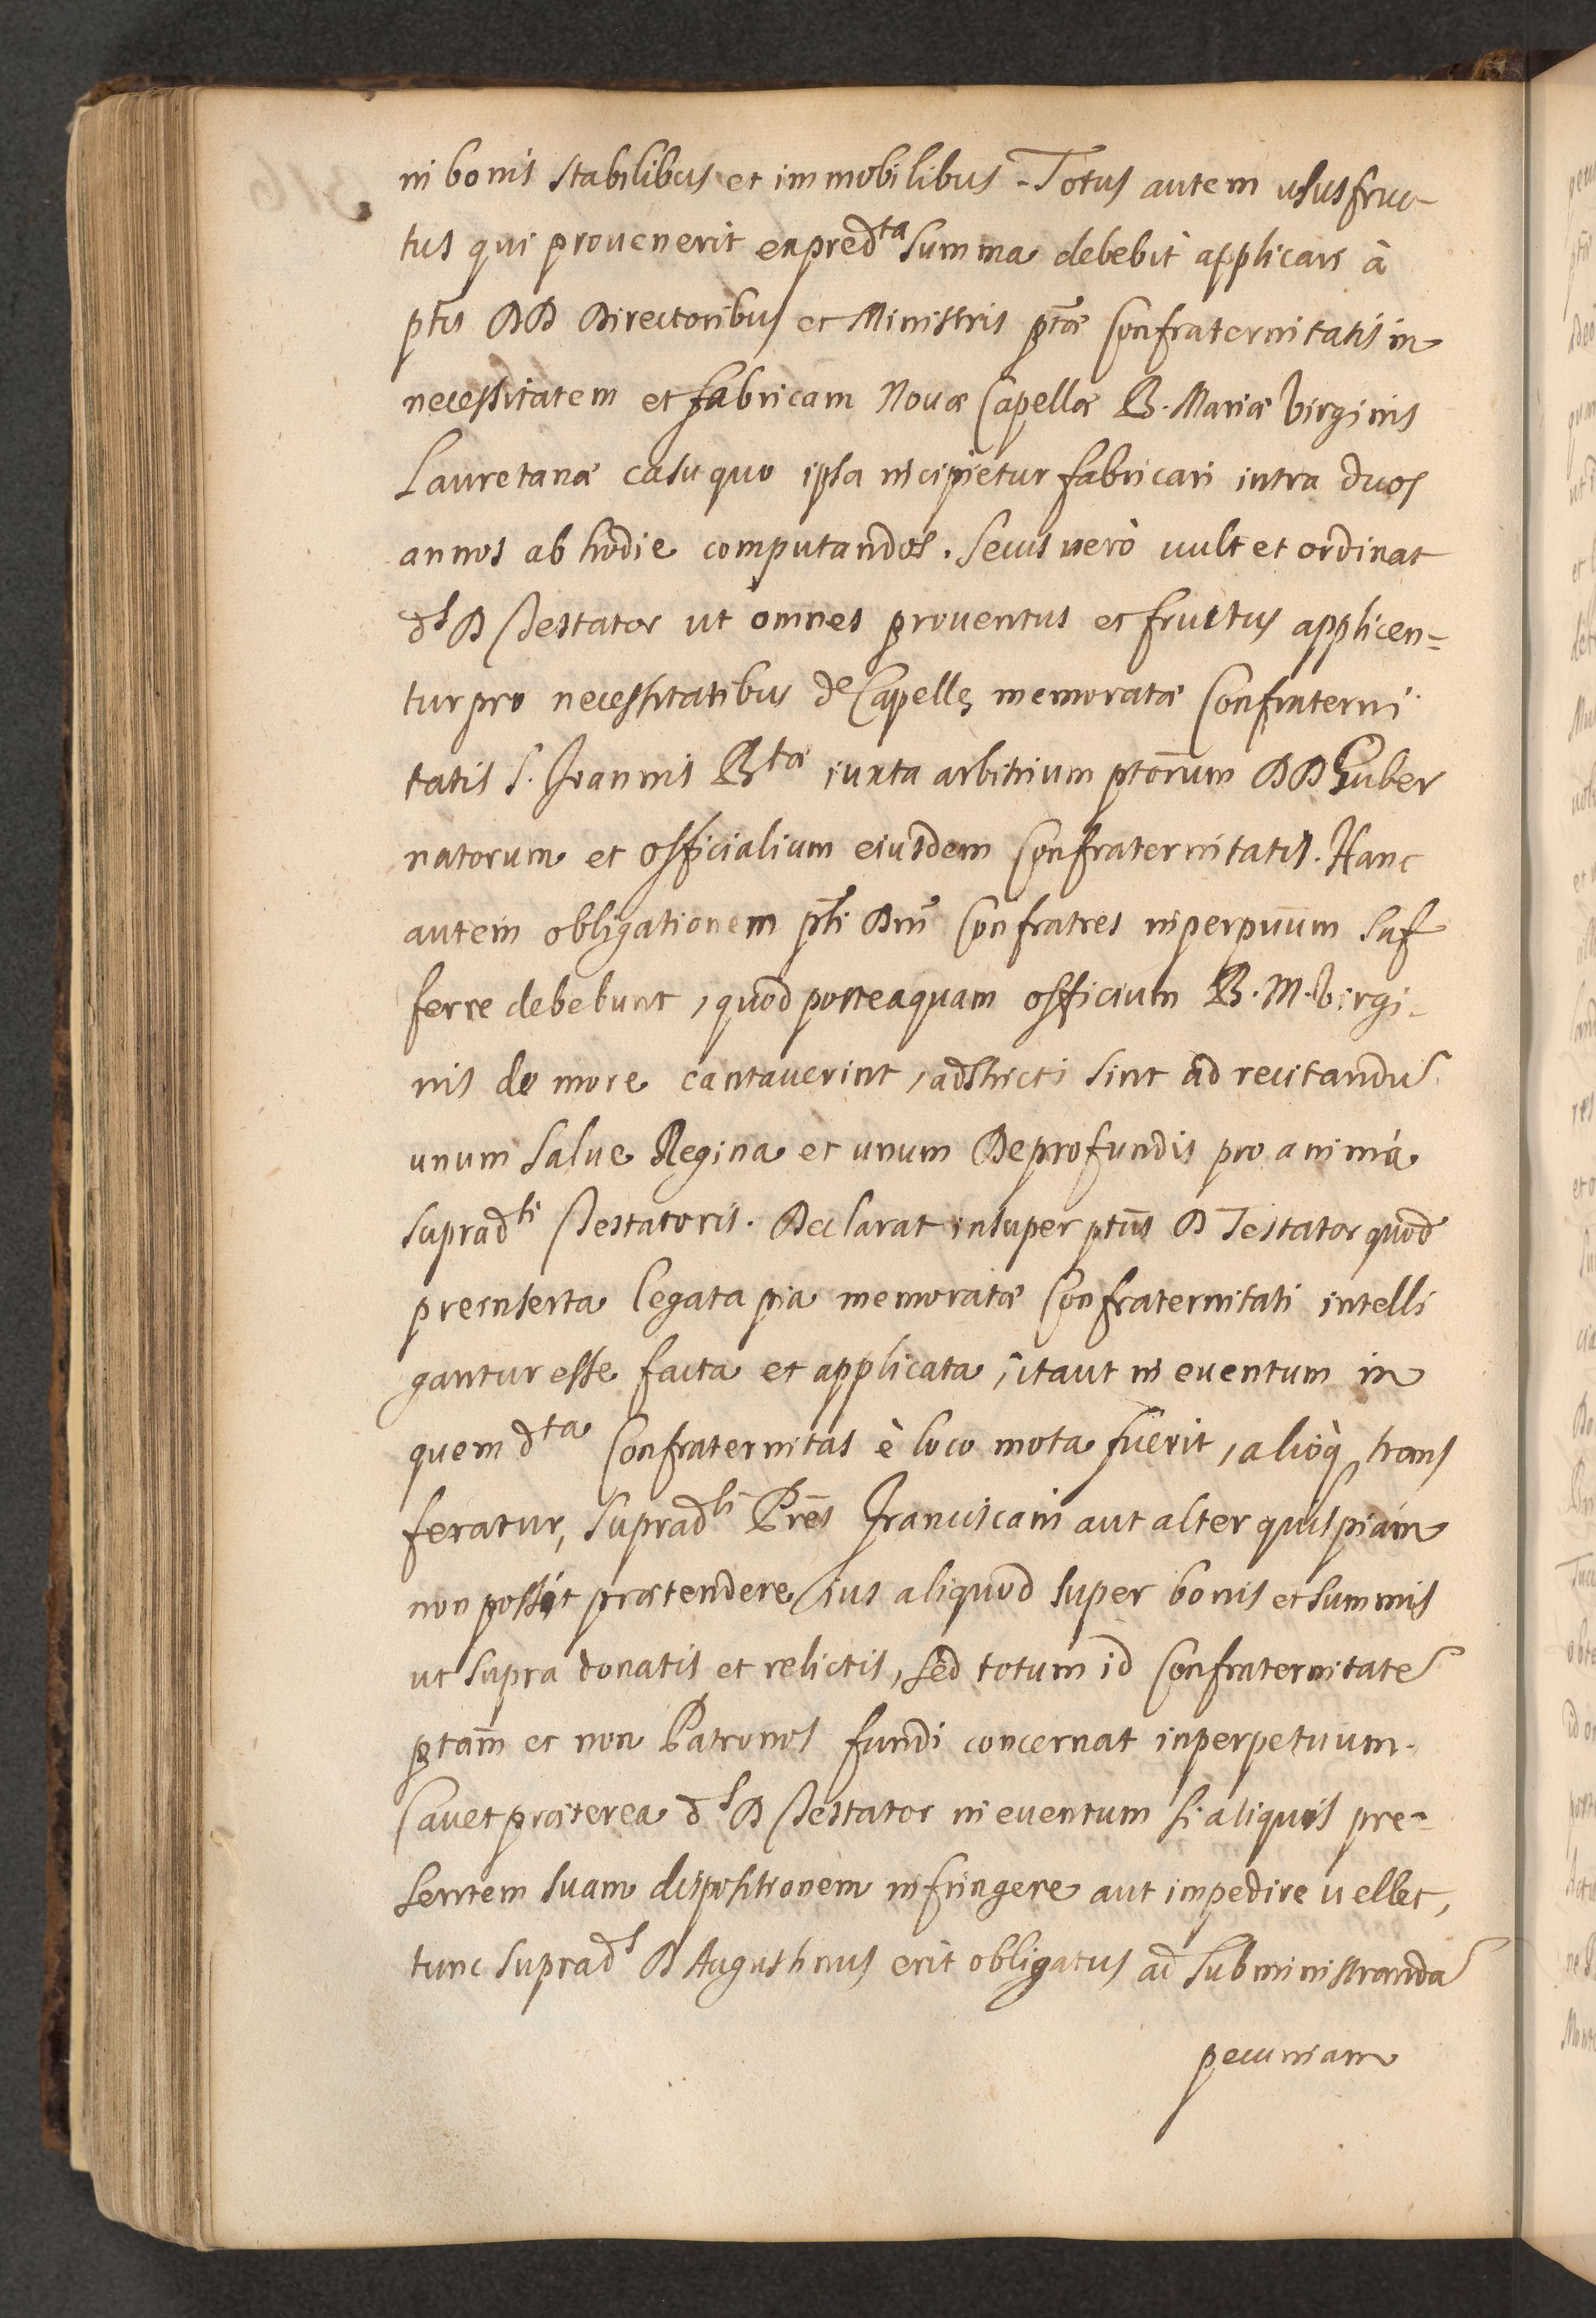 in bonis stabilibus et immobilibus. Totus autem usus fruc-
tus qui prouenerit ex pred^ta summa debebit applicari à
ptis DD Directoribus et Ministris ptæ Confraternitatis in
necessitatem et fabricam Nouæ Capellæ B. Mariæ Virginis
Lauretanæ casu quo ipsa incipietur fabricari intra duos
annos ab hodie computandos. Secus uerò uult et ordinat
d^s D Testator ut omnes prouentus et fructus applicen=
tur pro necessitatibus d^e Capellę memoratæ Confraterni
tatis S. Ioannis B^tæ iuxta arbitrium ptorum DD Guber
natorum et officialium eiusdem Confraternitatis. Hanc
autem obligationem pti Dni Confratres in perpuum suf
ferre debebunt, quod posteaquam officium B. M. Virgi-
nis de more cantauerint, adstricti sint ad recitandu
unum Salue Regina et unum De profundis pro anima
suprad^ti Testatoris. Declarat insuper ptus D Testator quod
preinserta legata pia memoratæ Confraternitati intelli
gantur esse facta et applicata, ita ut in euentum in
quem d^ta Confraternitas è loco mota fuerit, alioq trans
feratur, suprad^ti Pres Franciscani aut alter quispiam
non possit prætendere ius aliquod super bonis et summis
ut supra donatis et relictis, sed totum id Confraternitate
ptam et non Patronos fundi concernat in perpetuum.
Cauet præterea d^s D Testator in euentum si aliquis pre=
sentem suam dispositionem infringere aut impedire uellet,
tunc suprad^s D Augustinus erit obligatus ad subministranda
pecuniam